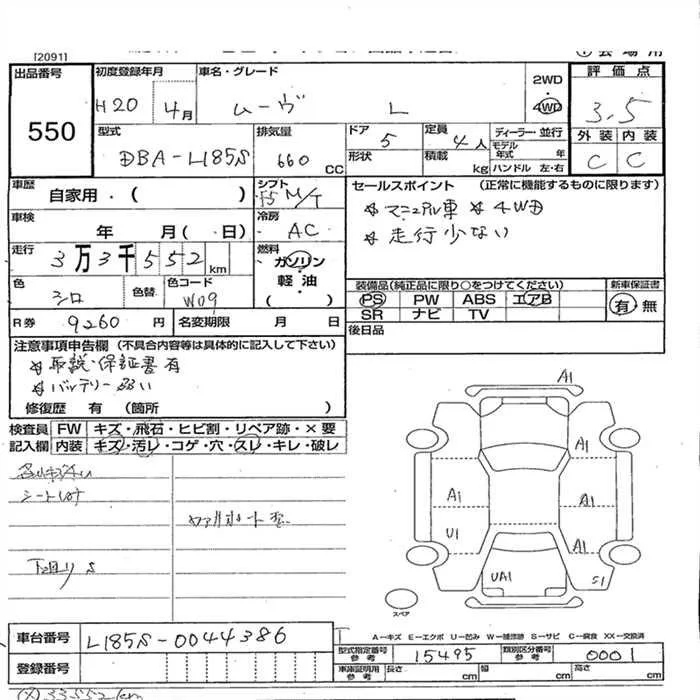 [2091]
会場用
出品番号
550
初度登録年月
H20 4月
車名・グレード
ムーヴ L
2WD
・
4WD
評価点
3.5
型式
DBA-L185S
排気量
660 CC
ドア 5
形状
定員 4人
積載 kg
ディーラー・並行
モデル年式 年
ハンドル 左・右
外装 内装
C C
車歴
自家用・( )
シフト
F5 M/T
車検
年 月( 日)
冷房
AC
走行
3万3千552km
燃料
ガソリン
軽油
( )
色
シロ
色替
色コード
W09
R券 9260円
名変期限 月 日
セールスポイント (正常に機能するものに限ります)
マニュアル車 4WD
走行少ない
装備品(純正品に限り○をつけてください)
PS PW ABS エアB
SR ナビ TV
新車保証書
有・無
後日品
注意事項申告欄(不具合内容等は具体的に記入して下さい)
取説・保証書有
バッテリー弱い
修復歴 有(箇所 )
検査員記入欄
FW キズ・飛石・ヒビ割・リペア跡・×要
内装 キズ・汚レ・コゲ・穴・スレ・キレ・破レ
下回りS
A1
A1
A1
A1
U1
A1
UA1
S1
スペア
車台番号 L185S-0044386
登録番号
A-キズ E-エクボ U-凹み W-補修跡 S-サビ C-腐食 XX-交換済
型式指定番号 参考 15495
類別区分番号 参考 0001
車庫証明用 参考 長さ cm 幅 cm 高さ cm
33552km